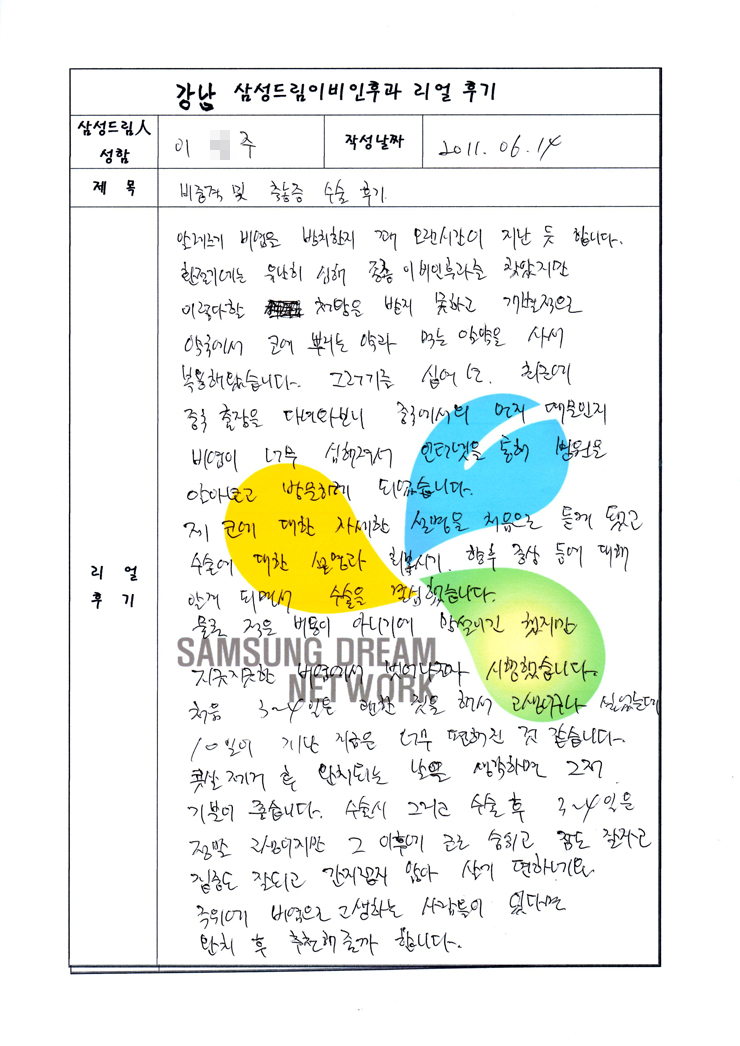 강남 삼성드림이비인후과 리얼 후기
삼성드림人 성함
이 주
작성날짜
2011. 06. 14
제 목
비중격 및 축농증 수술 후기.
리 얼 후 기
알레르기 비염을 방치한지 꽤 오랜시간이 지난 듯 합니다.
환절기에는 유난히 심해 종종 이비인후과를 찾았지만
이렇다할 처방을 받지 못하고 개인적으로
약국에서 코에 뿌리는 약과 먹는 알약을 사서
복용해왔습니다. 그러기를 십여년. 최근에
중국 출장을 다녀와보니 중국에서의 먼지 때문인지
비염이 너무 심해져서 인터넷을 통해 병원을
알아보고 방문하게 되었습니다.
제 코에 대한 자세한 설명을 처음으로 듣게 됐고
수술에 대한 설명과 회복시기, 향후 증상 등에 대해
알게 되면서 수술을 결심했습니다.
물론 적은 비용이 아니기에 망설이긴 했지만
지긋지긋한 비염에서 벗어나고자 시행했습니다.
처음 3~4일은 괜한 짓을 해서 고생이구나 싶었는데
10일이 지난 지금은 너무 편해진 것 같습니다.
콧살 제거 후 완치되는 날을 생각하면 그저
기분이 좋습니다. 수술시 그리고 수술 후 3~4일은
정말 고생이지만 그 이후에 코로 숨쉬고 잠도 잘자고
집중도 잘되고 간지럽지 않아 살기 편하네요
주위에 비염으로 고생하는 사람들이 있다면
완치 후 추천해줄까 합니다.
SAMSUNG DREAM
NETWORK